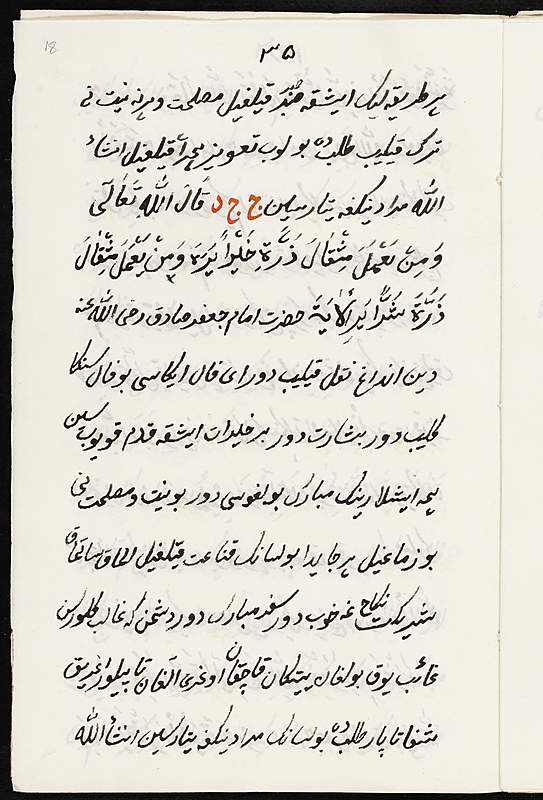 18
۳۵
هر طریقه لیک ایشقه صبر قیلغیل مصلحت و هر نه نیت نی
ترک قیلیب طلب ده بولوب تعویز همراه قیلغیل انشاء
الله مرادینکغه یتارسین ج ج د قال الله تعالی
وَمِنْ یَعْمَلَ مِثْقَالَ ذَرَّةٍ خَیْراً یَرَهَ وَمَنْ یَعْمَلَ مِثْقَالَ
ذَرَّةٍ شَرًّا یَرَ الْاَیَة حضرت امام جعفر صادق رضی الله عنه
دین انداغ نقل قیلیب دورای فال ایکاسی بو فال سنکا
کلیب دور بشارت دور هر خیلدات ایشقه قدم قویوب سین
همه ایشلارینک مبارک بولغوسی دور بو نیت و مصلحت نی
بوزماغیل هر جایدا بولسانک قناعت قیلغیل الماق ساتماق
شریکت نکاح غه خوب دور سفر مبارک دور دشمن که غالب کلورسن
غائب یوق بولغان یتکان قاچقان اوغری الغان تاپیلور اغریق
شفا تاپار طلب ده بولسانک مرادینکغه یتارسین انشاء الله